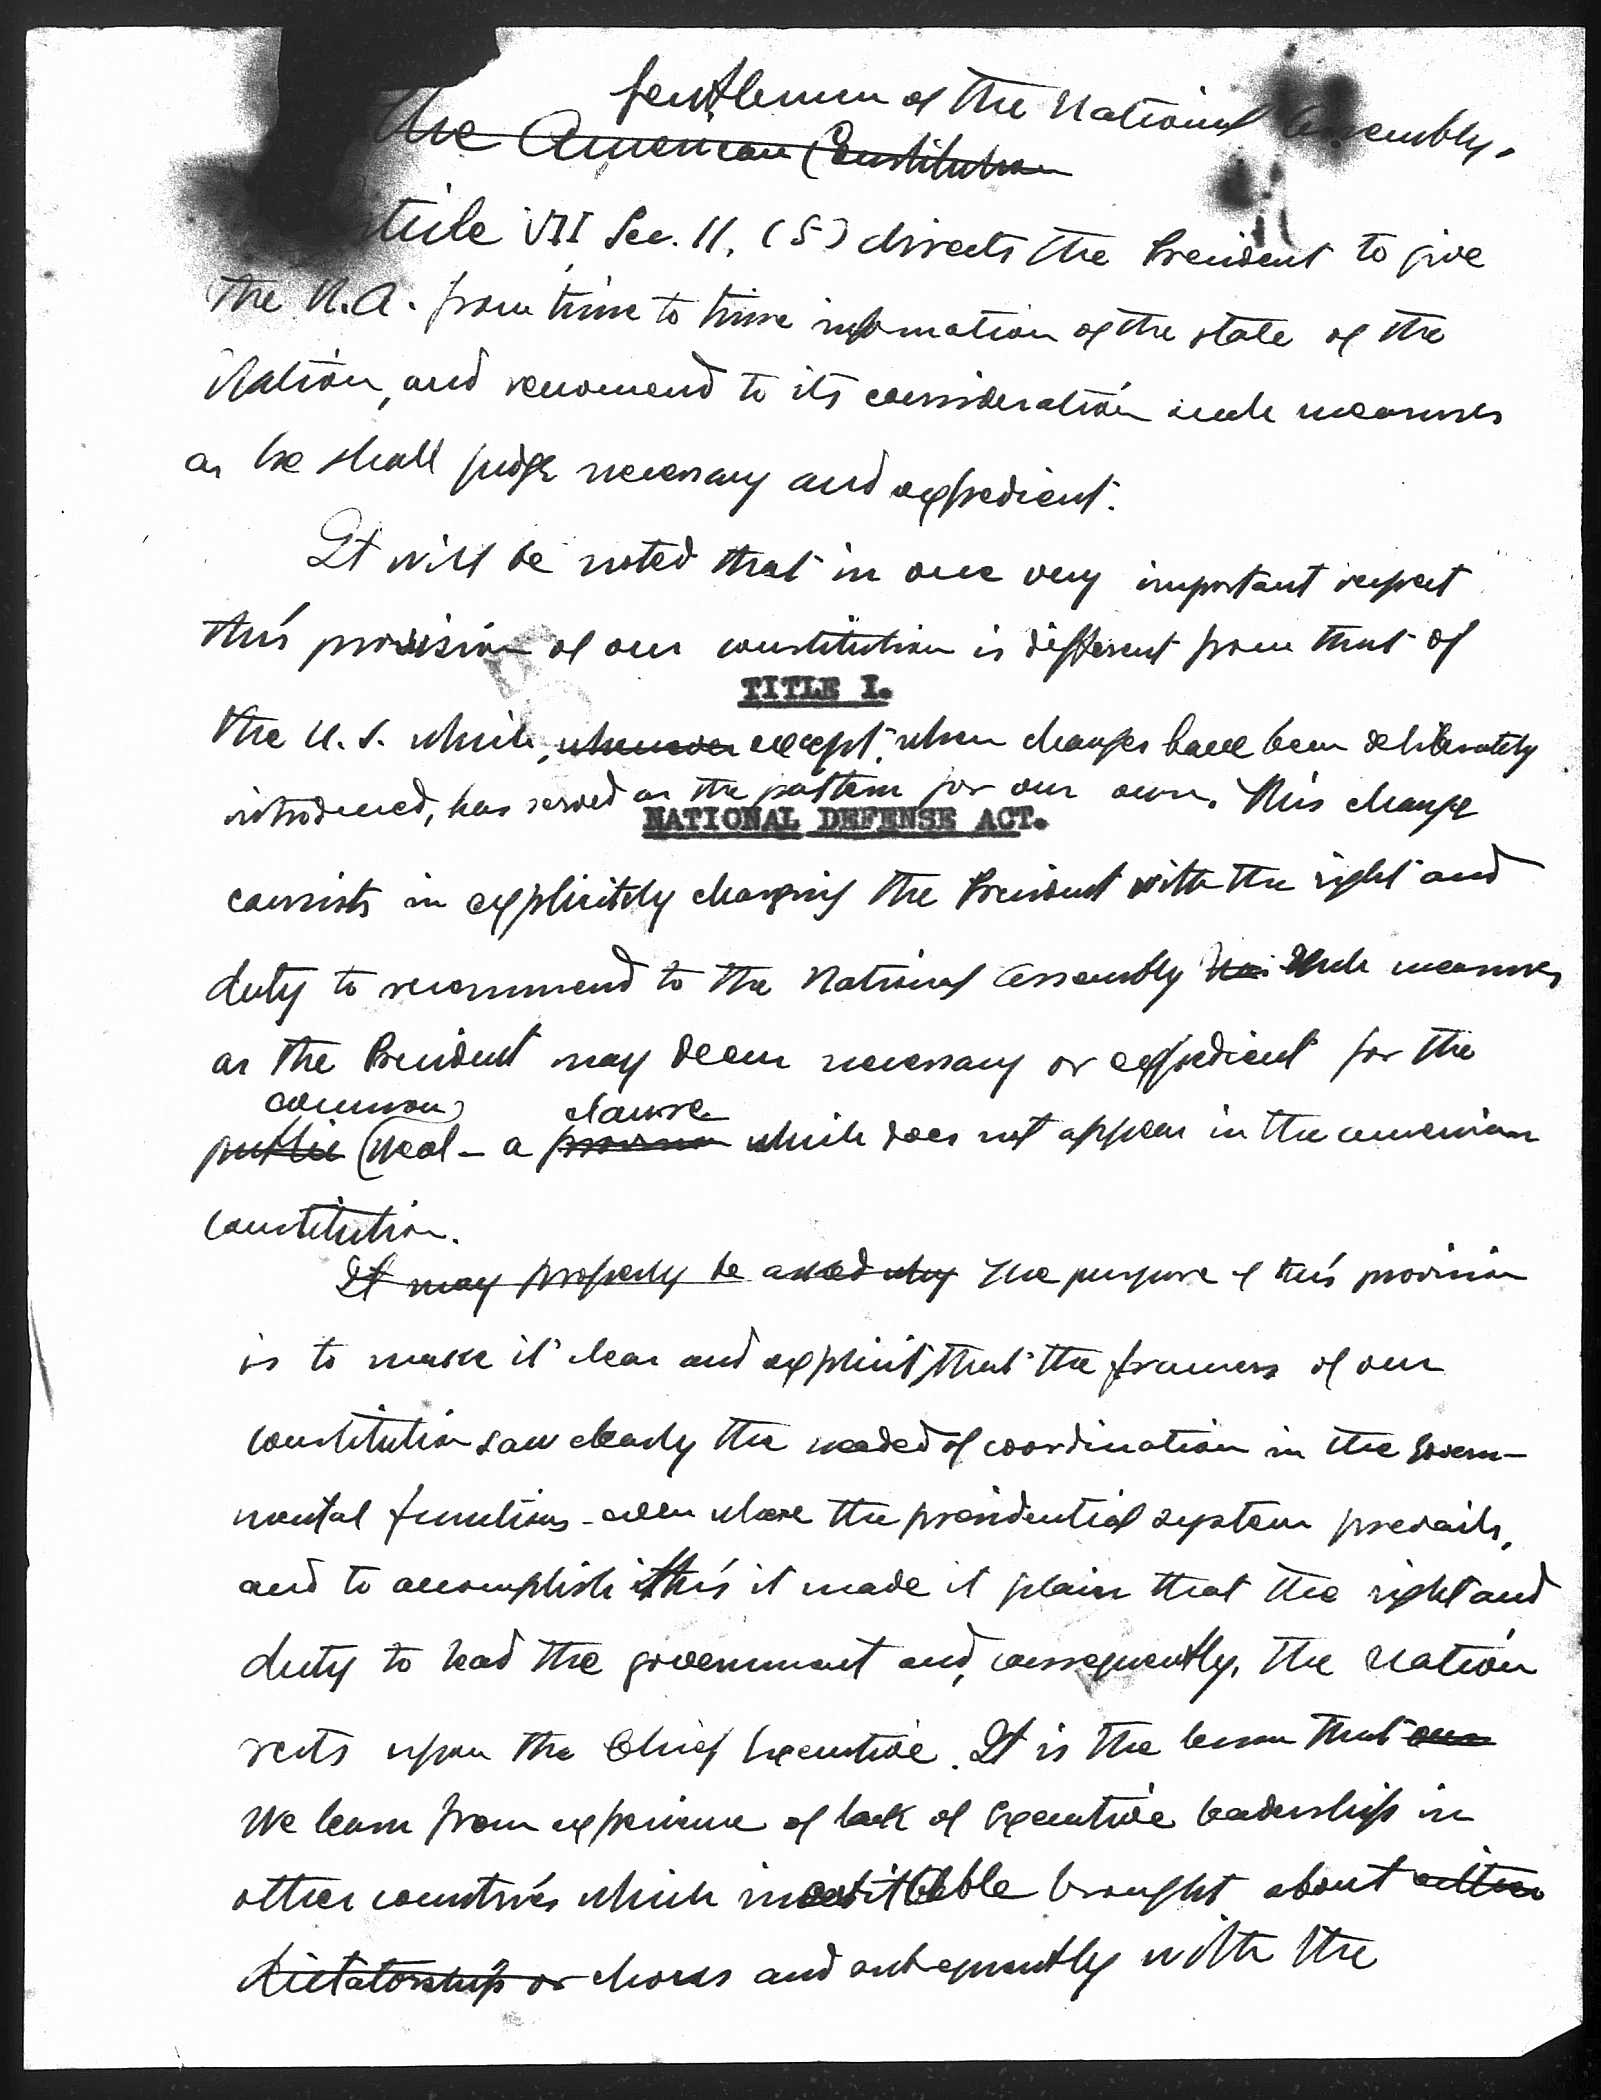 Gentlemen of the National Assembly.
The American Constitution
Article VII Sec. 11, (5) directs the President to give
the N.A. from time to time information of the state of the
Nation, and recomend to its consideration such measures
as he shall judge necessary and expedient.
It will be noted that in one very important respect
this provision of our constitution is different from that of
TITLE I.
the U.S. which, whenever except, when changes have been deliberately
introduced, has served as the pattern for our own. This change
NATIONAL DEFENSE ACT.
consists in explicitely charging the President with the right and
duty to recommend to the National Assembly such measures
as the President may deem necessary or expedient for the
common clause
public (weal - a provision which does not appear in the american
constitution.
It may properly be asked why The purpose of this provision
is to make it clear and explicit, that the framers of our
constitution saw clearly the needed of coordination in the govern-
mental functions - even where the presidential system prevails,
and to accomplish this it made it plain that the right and
duty to lead the government and, consequently, the Nation
rests upon the Chief Executive. It is the lesson that our
we learn from experience of lack of Executive leadership in
other countries which inevitable brought about either
dictatorship or chaos and subsequently with the